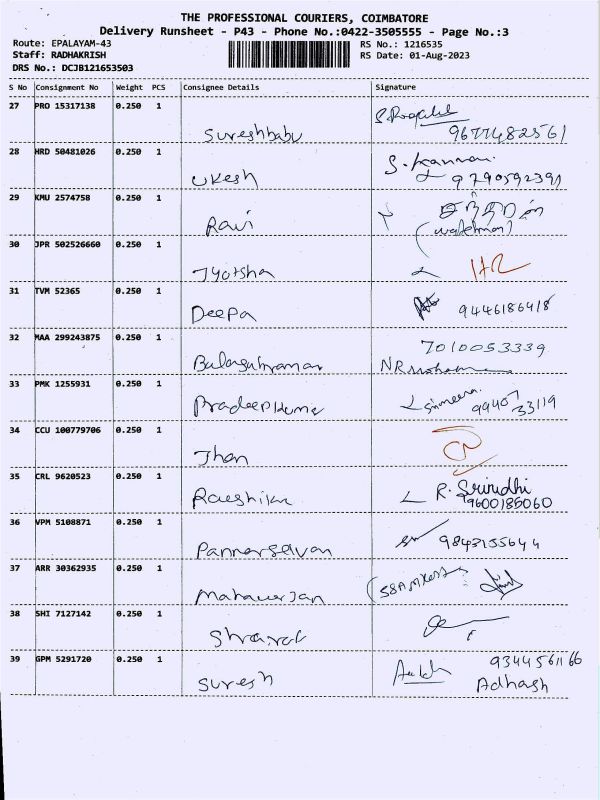 THE PROFESSIONAL COURIERS, COIMBATORE
Delivery Runsheet - P43 - Phone No.:0422-3505555 - Page No.:3
Route: EPALAYAM-43
RS No.: 1216535
Staff: RADHAKRISH
RS Date: 01-Aug-2023
DRS No.: DCJB121653503
S No Consignment No Weight PCS Consignee Details Signature
27 PRO 15317138 0.250 1
Sureshbabu 9677482561
28 HRD 50481026 0.250 1 S. Kannan
Ukesh 9790592391
29 KMU 2574758 0.250 1
Ravi (watchman)
30 JPR 502526660 0.250 1
Jyotsha HR
31 TVM 52365 0.250 1
Deepa 9446186418
32 MAA 299243875 0.250 1 7010053339
Balasubraman
33 PMK 1255931 0.250 1
Pradeepkume 99407 33119
34 CCU 100779706 0.250 1
Jhon
35 CRL 9620523 0.250 1 R. Srinidhi
Raeshika 9600185060
36 VPM 5108871 0.250 1
Pannerselvan 9843155644
37 ARR 30362935 0.250 1
Mahaveerjan
38 SHI 7127142 0.250 1
Sharat
39 GPM 5291720 0.250 1 9344561166
Suresh Adhash